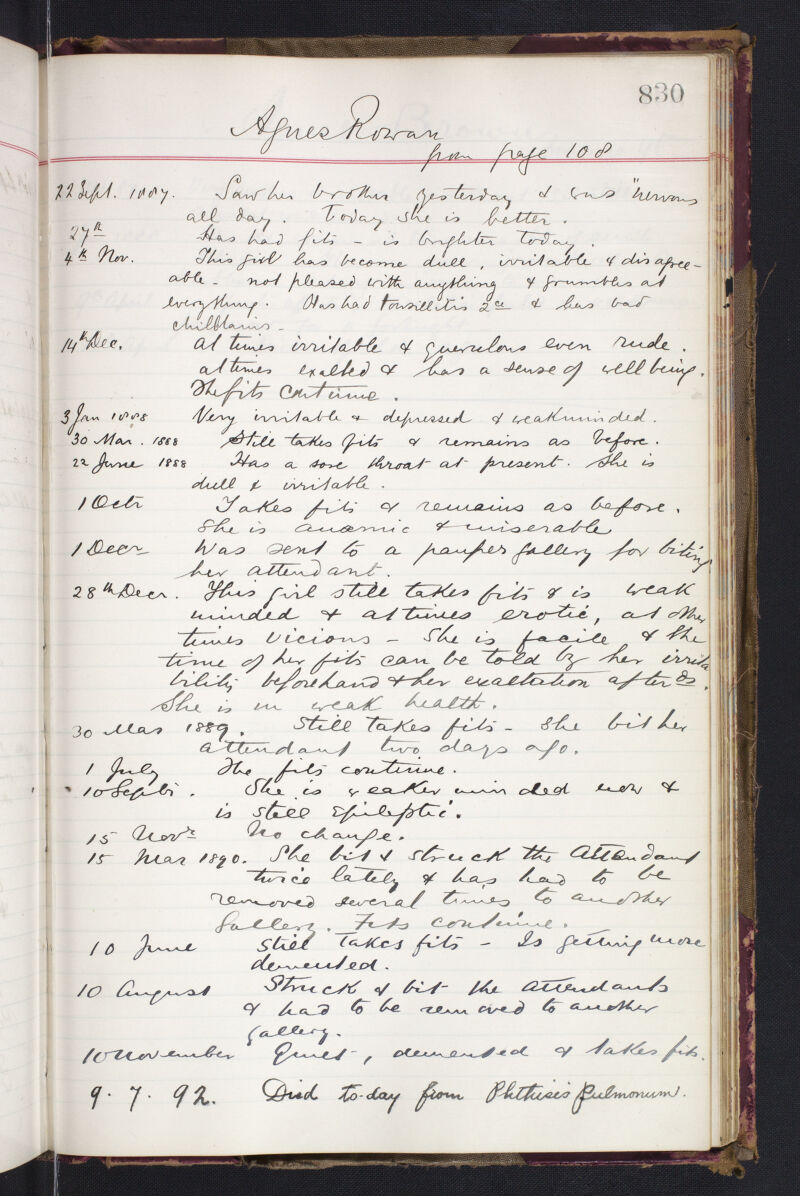 830
Agnes Rowan
from page 108
22 Sept. 1887. Saw her brother yesterday & was "nervous
all day. Today she is better.
27th Has had fits – is brighter today.
4th Nov. This girl has become dull, irritable & disagree-
able – not pleased with anything & grumbles at
everything. Has had tonsillitis & has bad
chilblains –
14th Dec. At times irritable & querulous even rude.
at times exalted & has a sense of well being.
The fits continue.
3 Jan 1888 Very irritable & depressed & weakminded.
30 Mar. 1888 Still takes fits & remains as before.
22 June 1888 Has a sore throat at present. She is
dull & irritable.
1 Octr Takes fits & remains as before.
She is anaemic & miserable
1 Decr Was sent to a pauper gallery for biting
her attendant.
28th Decr. This girl still takes fits & is weak
minded & at times erotic, at other
times vicious – She is facile & the
time of her fits can be told by her irrita
bility beforehand & her exaltation afterds.
She is in weak health.
30 Mar 1889. Still takes fits – She bit her
attendant two days ago.
1 July The fits continue.
10 Septr. She is weaker minded now &
is still Epileptic.
15 Novr No change.
15 Mar 1890. She bit & struck the Attendant
twice lately & has had to be
removed several times to another
Gallery. Fits continue.
10 June Still takes fits – Is getting more
demented.
10 August Struck & bit the attendants
& had to be removed to another
gallery.
10 November Quiet, demented & takes fits.
9.7.92. Died to-day from Phthisis Pulmonum.